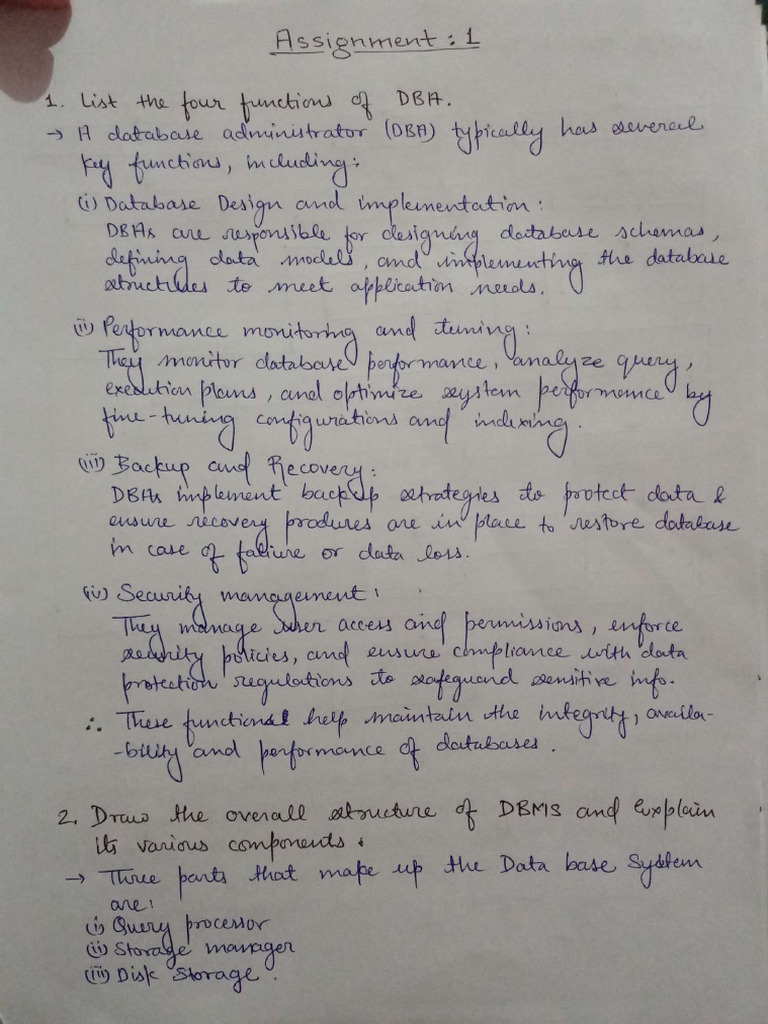 Assignment : 1
1. List the four functions of DBA.
→ A database administrator (DBA) typically has several
key functions, including:
(i) Database Design and implementation:
DBAs are responsible for designing database schemas,
defining data models, and implementing the database
structures to meet application needs.
(ii) Performance monitoring and tuning:
They monitor database performance, analyze query,
execution plans, and optimize system performance by
fine-tuning configurations and indexing.
(iii) Backup and Recovery:
DBAs implement backup strategies to protect data &
ensure recovery produres are in place to restore database
in case of failure or data loss.
(iv) Security management:
They manage user access and permissions, enforce
security policies, and ensure compliance with data
protection regulations to safeguard sensitive info.
∴ These functional help maintain the integrity, availa-
-bility and performance of databases.
2. Draw the overall structure of DBMS and Explain
its various components.
→ Three parts that make up the Data base System
are:
(i) Query processor
(ii) Storage manager
(iii) Disk Storage.